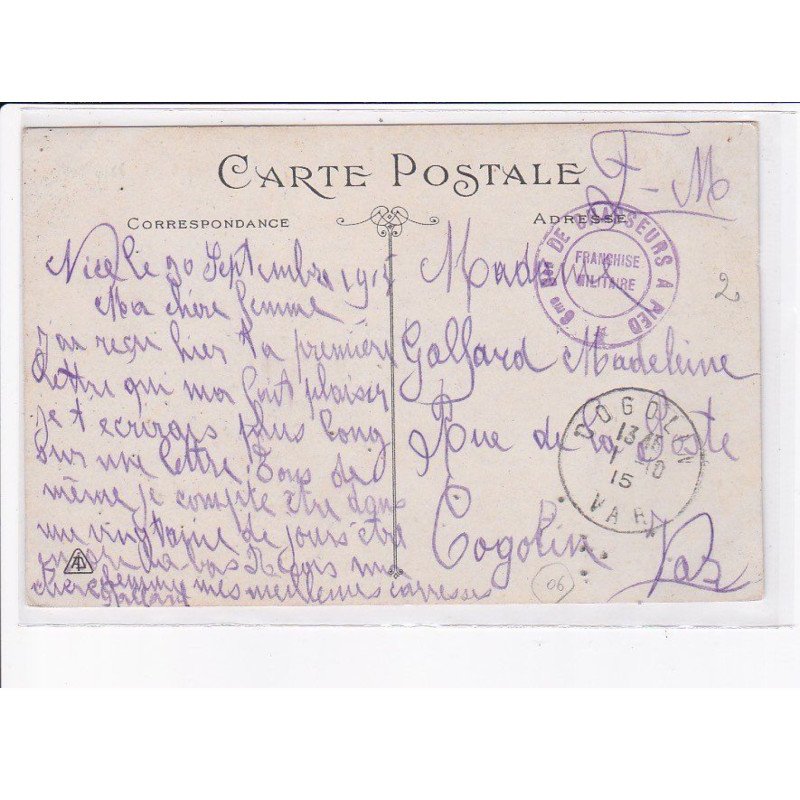 CARTE POSTALE
CORRESPONDANCE
ADRESSE
F-M
Nice le 30 Septembre 1915
Ma chère femme
j'ai reçu hier ta première
lettre qui ma fait plaisir
je t ecrirais plus long
sur une lettre. Tous de
même je compte être dans
une vingtaine de jours être
la bas Reçois ma
chere femme mes meilleures caresses
Gaffard
Madame
Gaffard Madeleine
Rue de la Poste
Cogolin
Var
6me Bon DE CHASSEURS A PIED
FRANCHISE
MILITAIRE
COGOLIN
13 45
1 -10
15
VAR
2
06